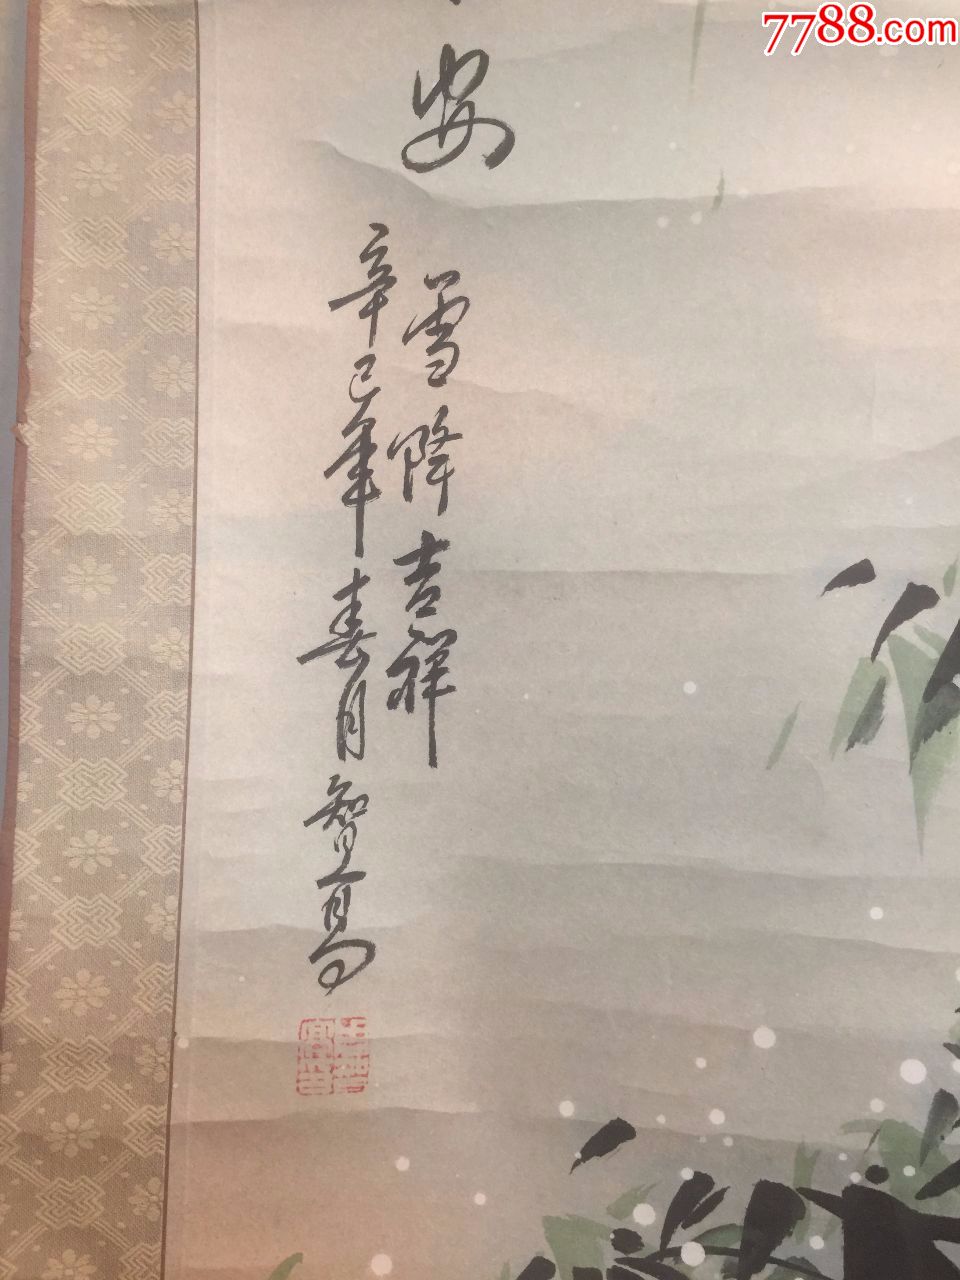 7788.com
安
雪降吉祥
辛巳年春月智高